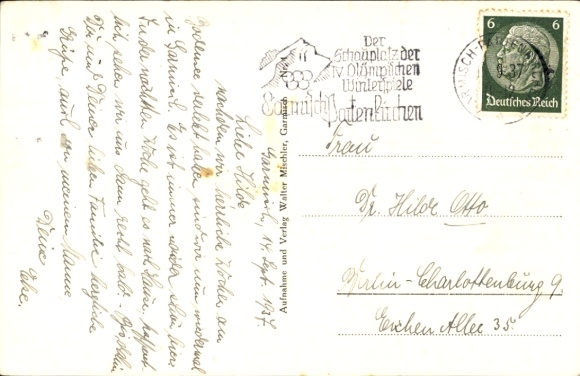 Garmisch, 14. Sept. 1937.
Liebe Hilde
nachdem wir herrliche Wochen am
Bodensee verlebt haben sind wir nun nochmal
in Garmisch. Es ist immer wieder schön hier.
In der nächsten Woche geht es nach Hause, hoffent-
lich sehen wir uns dann recht bald.
Dir und Deiner lieben Familie herzliche
Grüße, auch von meinem Manne
Deine
Aufnahme und Verlag Walter Mischler, Garmisch
Der
Schauplatz der
IV. Olympischen
Winterspiele
Garmisch Partenkirchen
6 6
Deutsches Reich
Frau
Dr. Hilde Otto
Berlin-Charlottenburg 9.
Eichen Allee 35